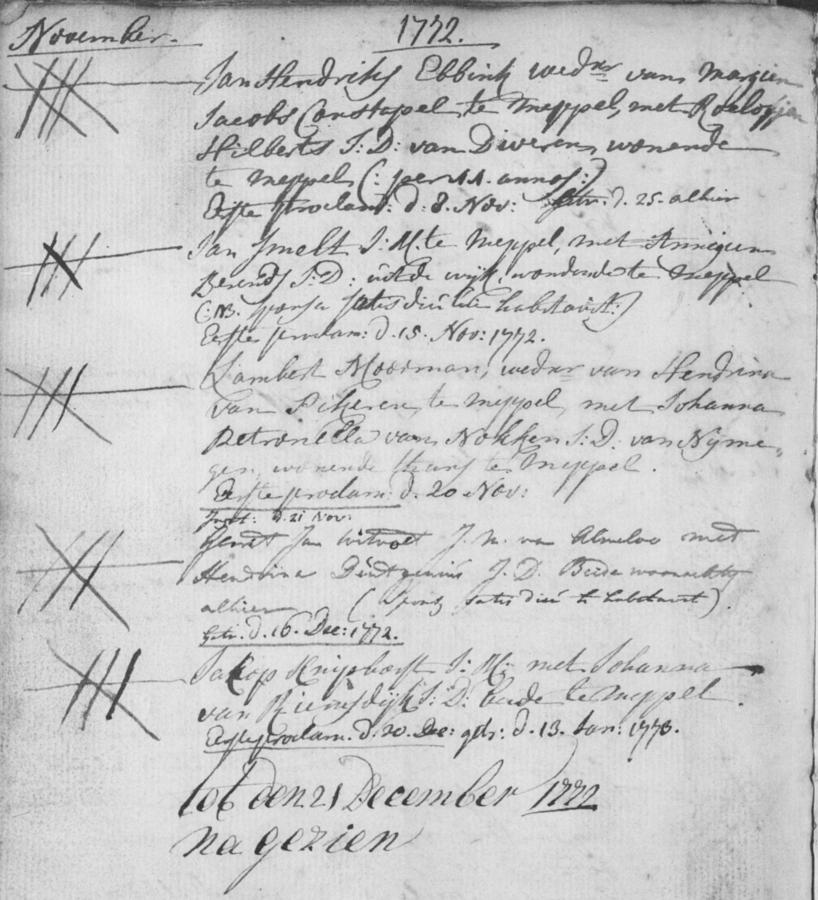 November. 1772.
Jan Hendriks Ebbink wedr van Margien
Jacobs Constapel te Meppel, met Roelofjen
Hilberts J: D: van Diveren, wonende
te Meppel (: per 11. annos:)
Eerste proclam: d: 8. Nov: getr. d. 25. alhier
Jan Smelt J: M. te Meppel, met Annigjen
Berends J: D. uit de wijk, wonende te Meppel
(: NB. sponsa satis diu hic habitavit:)
Eerste proclam: d. 15. Nov: 1772.
Lambert Moorman, wedr van Hendrina
van te Meppel, met Johanna
Petronella van Nokken J: D: van Nijme„
gen, wonende thans te Meppel.
Eerste proclam: d. 20 Nov:
d. 21 Nov:
Gerrit Jan J. M. van Almeloo met
Hendrina J. D. Beide woonachtig
alhier ( satis diu habitavit).
Getr. d. 16. Dec: 1772.
Jakop Kniphorst J: M: met Johanna
van Riemsdijk J: D: beide te Meppel.
Eerste proclam. d. 20. Dec: getr: d. 13. Jan: 1773.
tot den 21 December 1772
na gezien